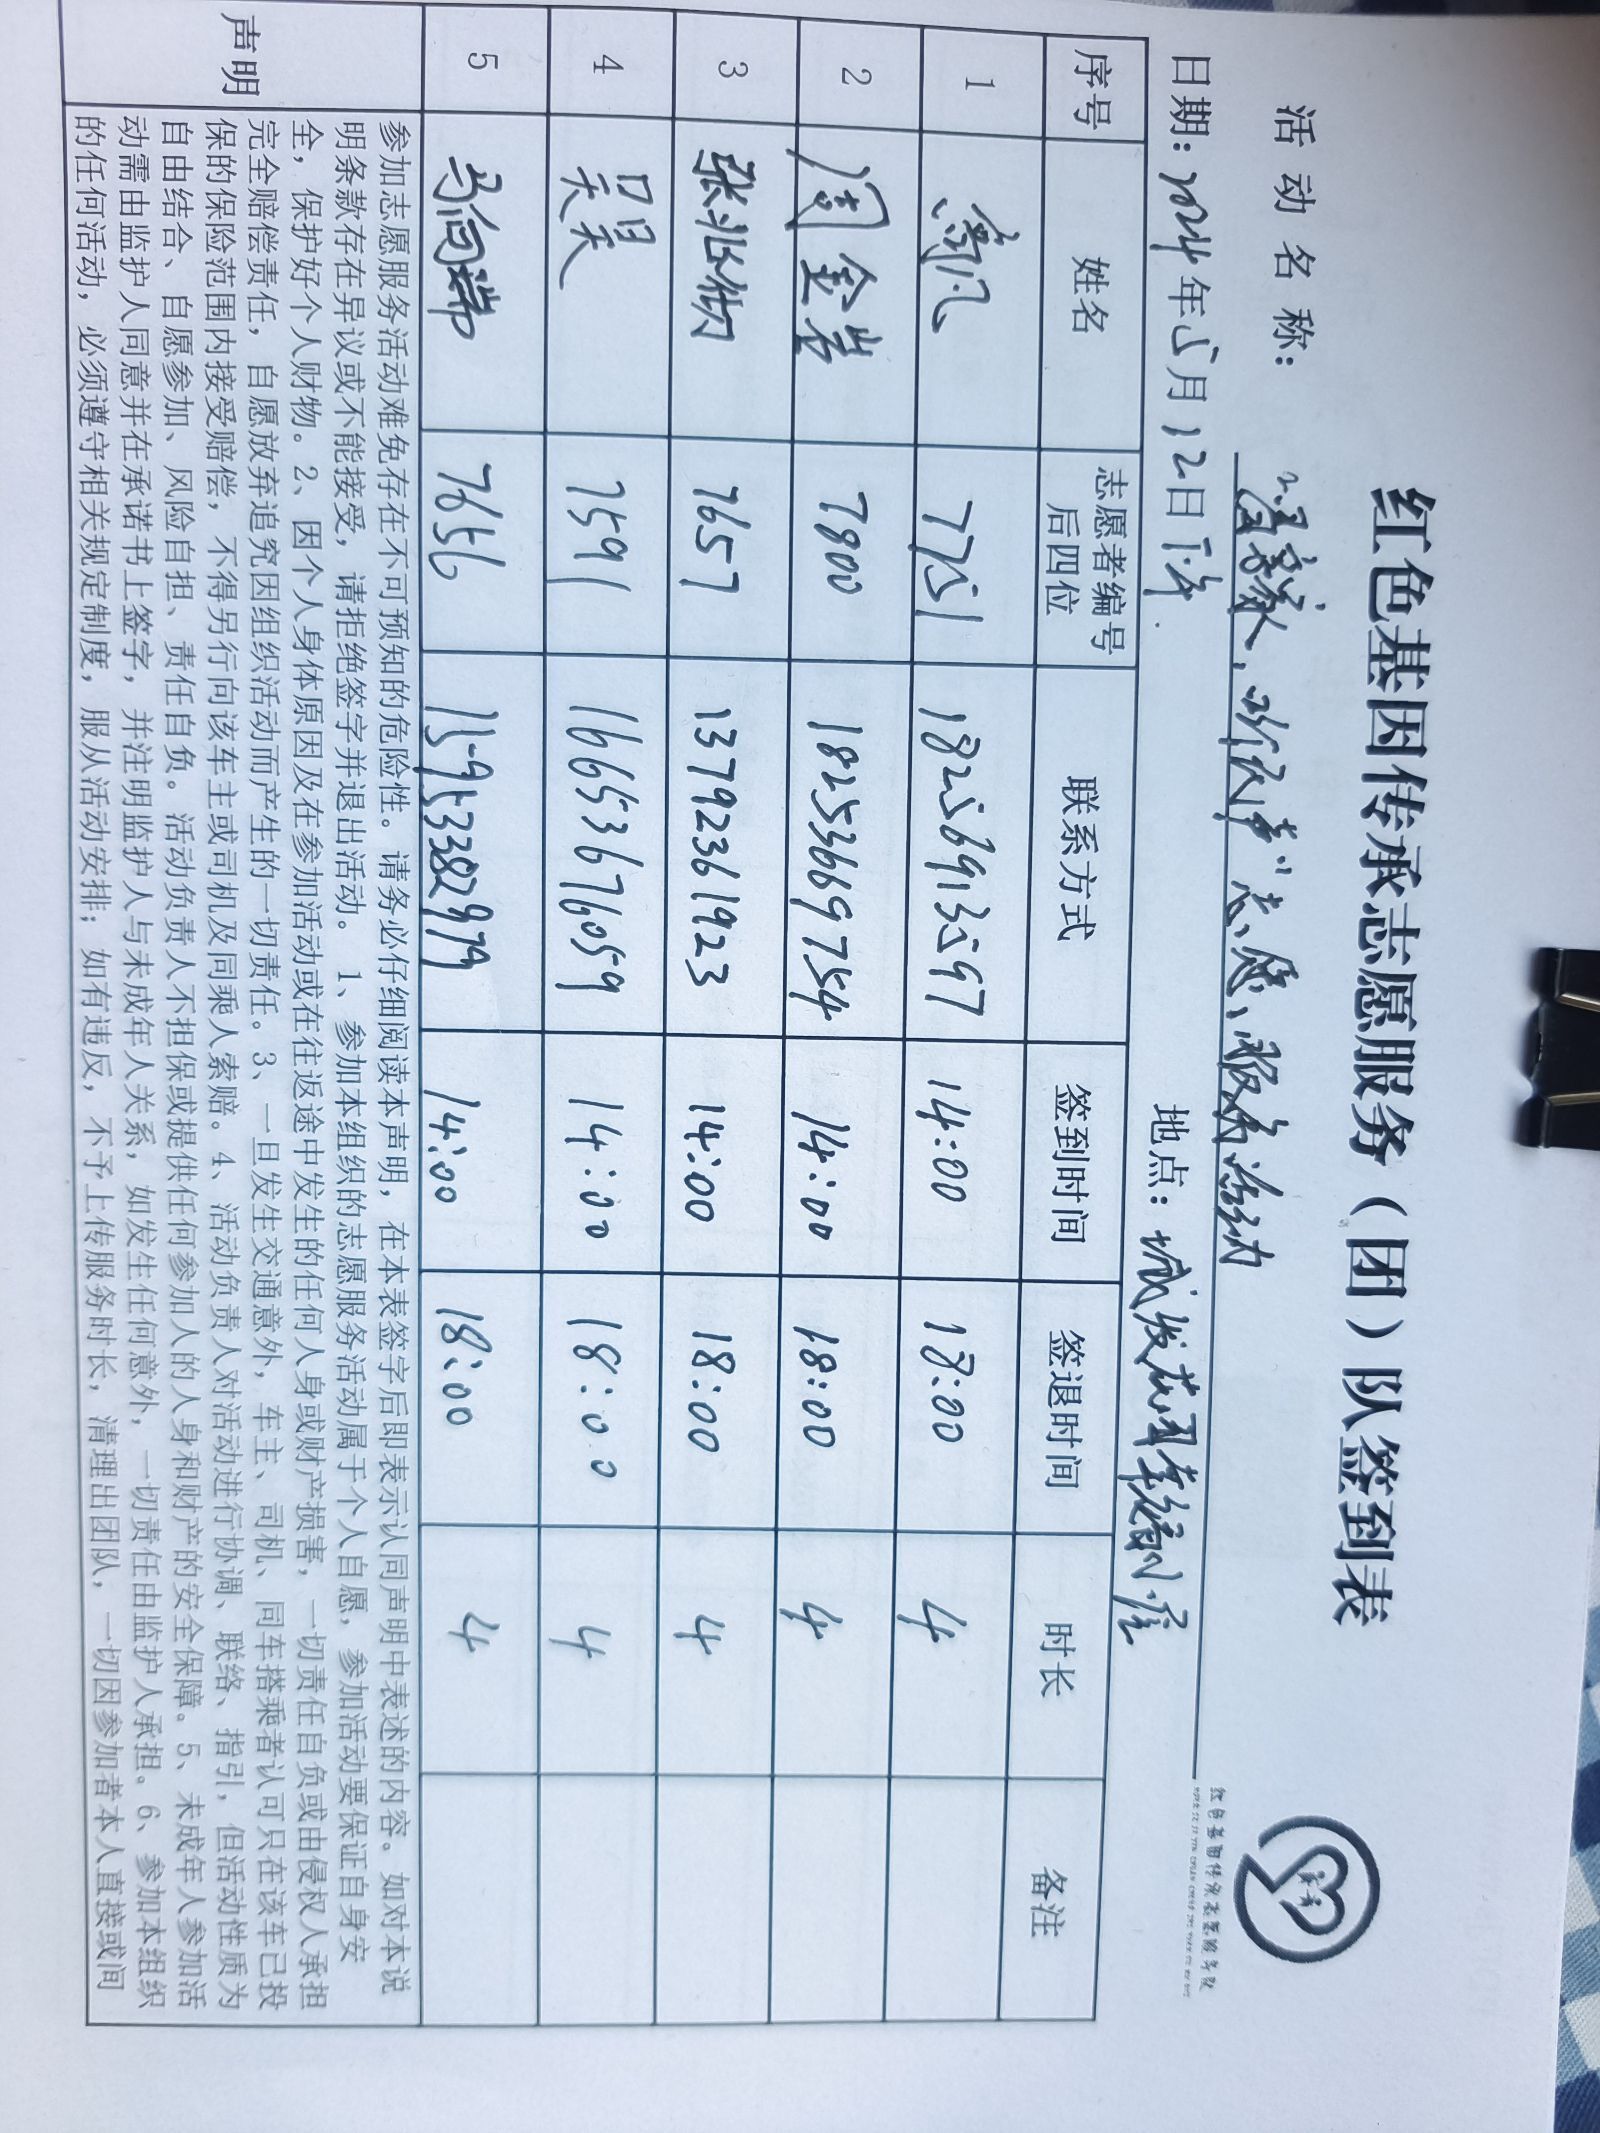 红色基因传承志愿服务（团）队签到表
红色基因传承志愿服务队
活动名称： 志愿服务活动
日期：2024年5月12日下午 地点：
序号 姓名 志愿者编号后四位 联系方式 签到时间 签退时间 时长 备注
1 7751 18256913597 14:00 18:00 4
2 周金岩 7800 18253669754 14:00 18:00 4
3 7657 13792361923 14:00 18:00 4
4 吴昊 7591 16653676059 14:00 18:00 4
5 马向瑞 7656 15953382979 14:00 18:00 4
声明
参加志愿服务活动难免存在不可预知的危险性。请务必仔细阅读本声明，在本表签字后即表示认同声明中表述的内容。如对本说
明条款存在异议或不能接受，请拒绝签字并退出活动。1、参加本组织的志愿服务活动属于个人自愿，参加活动要保证自身安
全，保护好个人财物。2、因个人身体原因及在参加活动或在往返途中发生的任何人身或财产损害，一切责任自负或由侵权人承担
完全赔偿责任，自愿放弃追究因组织活动而产生的一切责任。3、一旦发生交通意外，车主、司机、同车搭乘者认可只在该车已投
保的保险范围内接受赔偿，不得另行向该车主或司机及同乘人索赔。4、活动负责人对活动进行协调、联络、指引，但活动性质为
自由结合、自愿参加、风险自担、责任自负。活动负责人不担保或提供任何参加人的人身和财产的安全保障。5、未成年人参加活
动需由监护人同意并在承诺书上签字，并注明监护人与未成年人关系，如发生任何意外，一切责任由监护人承担。6、参加本组织
的任何活动，必须遵守相关规定制度，服从活动安排；如有违反，不予上传服务时长，清理出团队，一切因参加者本人直接或间